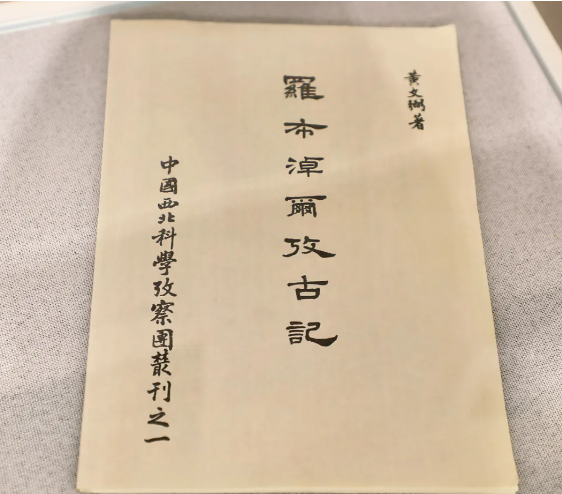 黄文弼著
羅布淖爾攷古記
中國西北科學攷察團叢刊之一